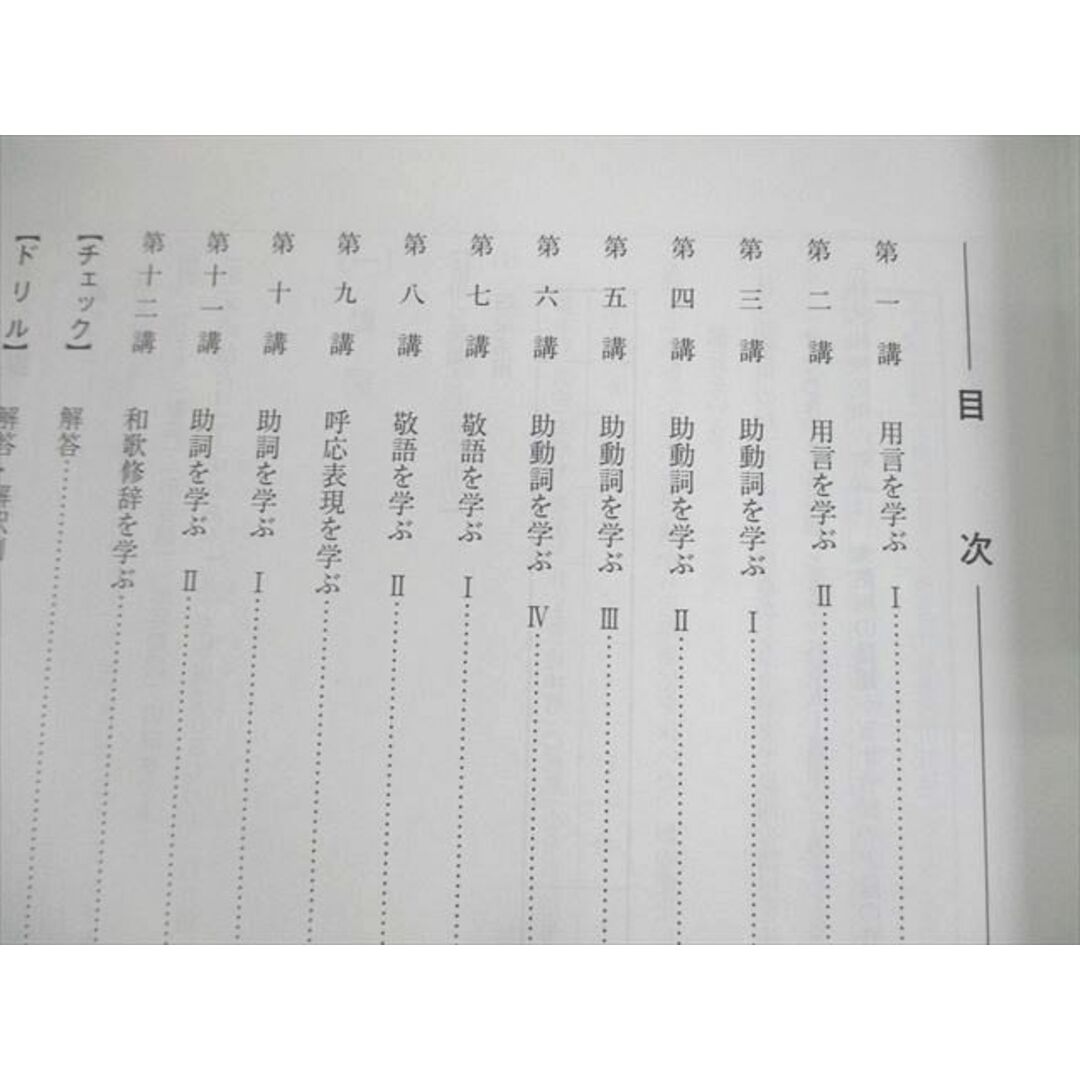 目次
第一講 用言を学ぶ Ⅰ
第二講 用言を学ぶ Ⅱ
第三講 助動詞を学ぶ Ⅰ
第四講 助動詞を学ぶ Ⅱ
第五講 助動詞を学ぶ Ⅲ
第六講 助動詞を学ぶ Ⅳ
第七講 敬語を学ぶ Ⅰ
第八講 敬語を学ぶ Ⅱ
第九講 呼応表現を学ぶ
第十講 助詞を学ぶ Ⅰ
第十一講 助詞を学ぶ Ⅱ
第十二講 和歌修辞を学ぶ
【チェック】 解答
【ドリル】 解答・解釈例